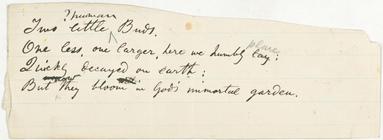 ? human
Two little Buds.
One less, one larger, here we humbly lay; place
Quickly decayed on earth;
But they bloom in God's immortal garden.